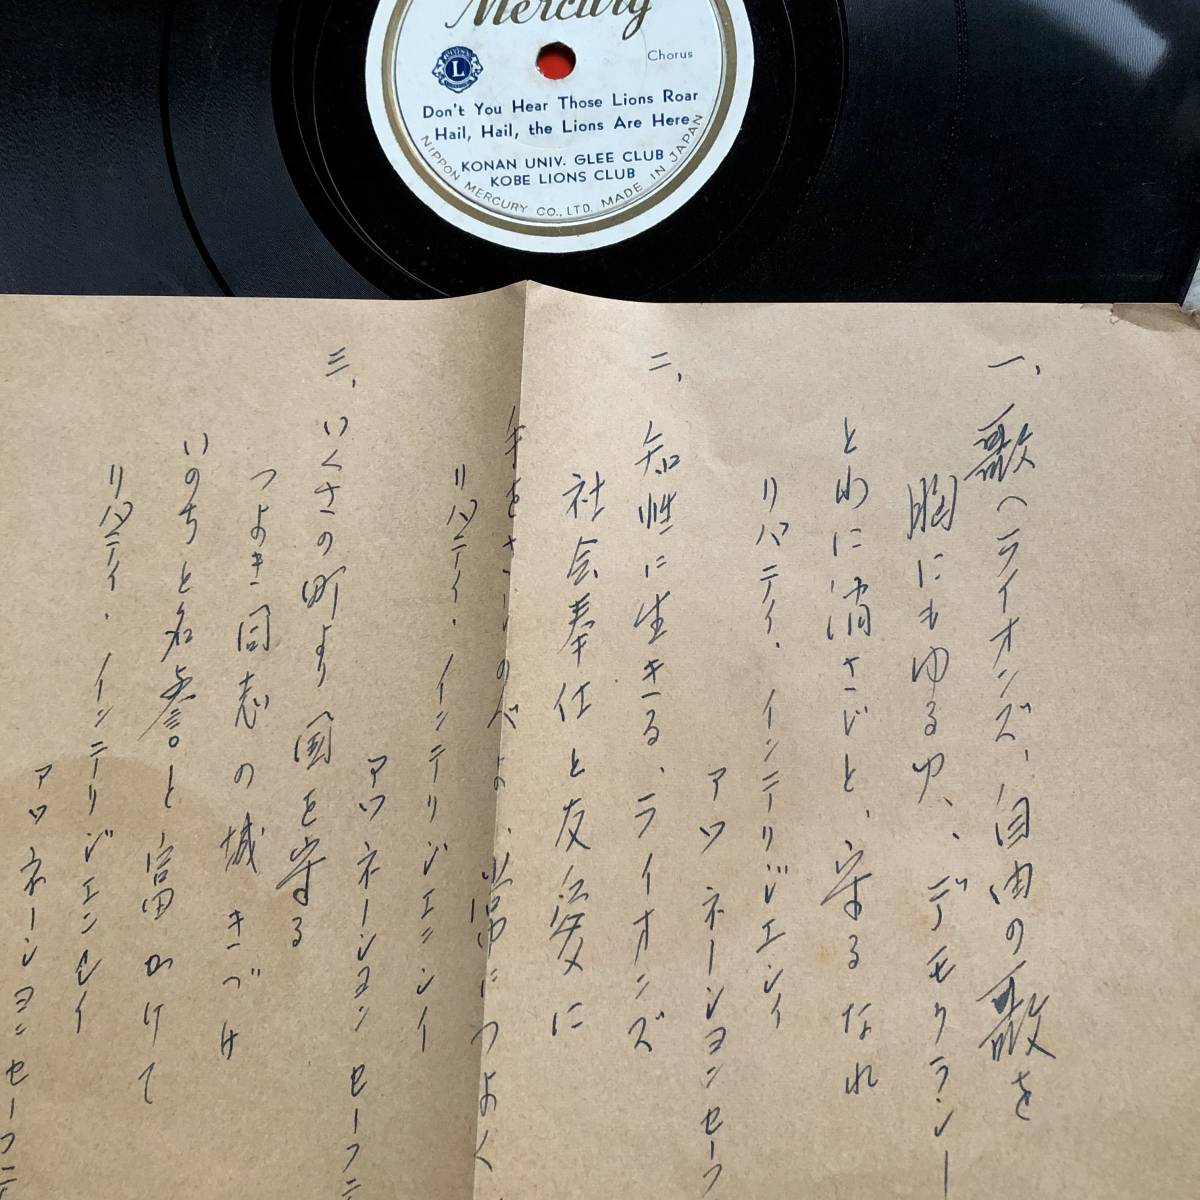 Mercury
Chorus
L
Don't You Hear Those Lions Roar
Hail, Hail, the Lions Are Here
KONAN UNIV. GLEE CLUB
KOBE LIONS CLUB
NIPPON MERCURY CO., LTD. MADE IN JAPAN
一、歌へライオンズ、自由の歌を
胸にもゆるや、デモクラシー
とわに消さじと、守るなれ
リバティ、インテーリジエンイ
アワ ネーションセーフ
二、知性に生きる、ライオンズ
社会奉仕と友愛に
手をさしのべよ、常につよく
リバティ・インテーリジエンシイ
アワ ネーションセーフテ
三、いくさの町より国を守る
つよき同志の城きづけ
いのちと名誉と富かけて
リバティ・インテーリジエンシイ
アワ ネーションセーフテ